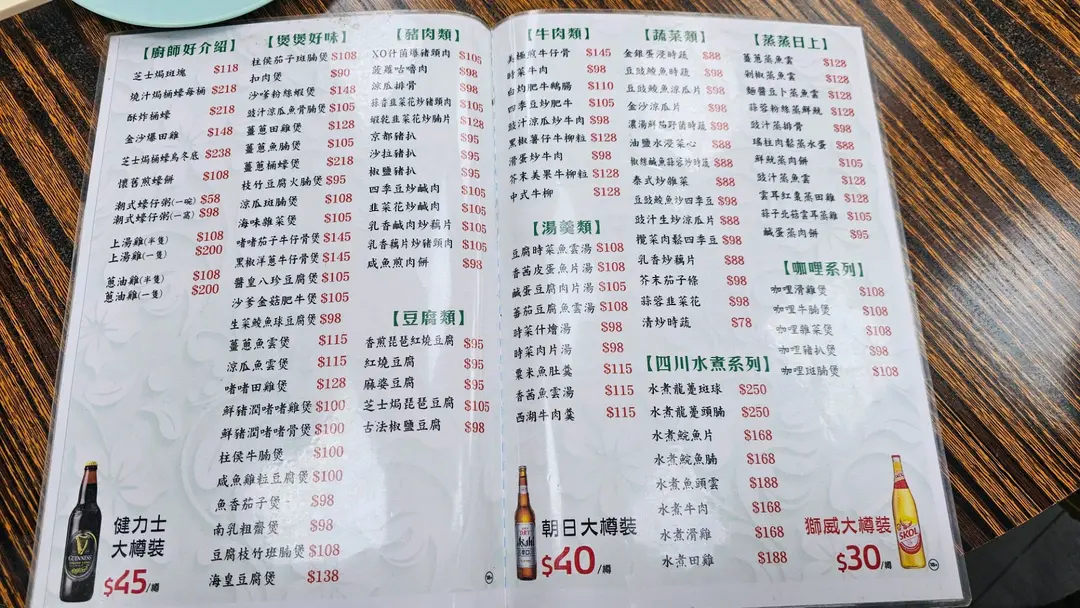 【廚師好介紹】
芝士焗斑塊 $118
燒汁焗桶蠔每桶 $218
酥炸桶蠔 $218
金沙爆田雞 $148
芝士焗桶蠔烏冬底 $238
懷舊煎蠔餅 $108
潮式蠔仔粥(一碗) $58
潮式蠔仔粥(一窩) $98
上湯雞(半隻) $108
上湯雞(一隻) $200
蔥油雞(半隻) $108
蔥油雞(一隻) $200
健力士
大樽裝
$45/樽
GUINNESS
【煲煲好味】
柱侯茄子斑腩煲 $108
扣肉煲 $90
沙嗲粉絲蝦煲 $148
豉汁涼瓜魚骨腩煲 $105
薑蔥田雞煲 $128
薑蔥魚腩煲 $105
薑蔥桶蠔煲 $218
枝竹豆腐火腩煲 $95
涼瓜斑腩煲 $108
海味雜菜煲 $105
啫啫茄子牛仔骨煲 $145
黑椒洋蔥牛仔骨煲 $145
醬皇八珍豆腐煲 $105
沙爹金菇肥牛煲 $105
生菜鯪魚球豆腐煲 $98
薑蔥魚雲煲 $115
涼瓜魚雲煲 $115
啫啫田雞煲 $128
鮮豬潤啫啫雞煲 $100
鮮豬潤啫啫骨煲 $100
柱侯牛腩煲 $100
咸魚雞粒豆腐煲 $100
魚香茄子煲 $98
南乳粗齋煲 $98
豆腐枝竹班腩煲 $108
海皇豆腐煲 $138
【豬肉類】
XO什菌爆豬頸肉 $105
菠蘿咕嚕肉 $98
涼瓜排骨 $98
蒜香韮菜花炒豬頸肉 $105
蝦乾韮菜花炒腩片 $128
京都豬扒 $95
沙拉豬扒 $95
椒鹽豬扒 $95
四季豆炒鹹肉 $105
韮菜花炒鹹肉 $105
乳香鹹肉炒藕片 $105
乳香藕片炒豬頸肉 $105
咸魚煎肉餅 $93
【豆腐類】
香煎琵琶紅燒豆腐 $95
紅燒豆腐 $95
麻婆豆腐 $95
芝士焗琵琶豆腐 $105
古法椒鹽豆腐 $98
【牛肉類】
美極煎牛仔骨 $145
時菜牛肉 $98
白灼肥牛鵝腸 $110
四季豆炒肥牛 $105
豉汁涼瓜炒牛肉 $98
黑椒薯仔牛柳粒 $128
滑蛋炒牛肉 $98
芥末美果牛柳粒 $128
中式牛柳 $128
【湯羹類】
豆腐時菜魚雲湯 $108
香茜皮蛋魚片湯 $108
鹹蛋豆腐肉片湯 $105
蕃茄豆腐魚雲湯 $108
時菜什燴湯 $98
時菜肉片湯 $98
粟米魚肚羹 $115
香茜魚雲湯 $115
西湖牛肉羹 $115
Asahi
朝日大樽裝
$40/樽
【蔬菜類】
金銀蛋浸時蔬 $88
豆豉鯪魚時蔬 $98
豆豉鯪魚涼瓜片 $98
金沙涼瓜片 $98
濃湯鮮茄野菌時蔬 $98
油鹽水浸菜心 $88
椒絲鹹魚蒜蓉炒時蔬 $88
泰式炒雜菜 $88
豆豉鯪魚炒四季豆 $98
豉汁生炒涼瓜片 $88
欖菜肉鬆四季豆 $98
乳香炒藕片 $88
芥末茄子條 $98
蒜蓉韮菜花 $98
清炒時蔬 $78
【四川水煮系列】
水煮龍躉斑球 $250
水煮龍躉頭腩 $250
水煮鯇魚片 $168
水煮鯇魚腩 $168
水煮魚頭雲 $188
水煮牛肉 $168
水煮滑雞 $168
水煮田雞 $188
【蒸蒸日上】
薑蔥蒸魚雲 $128
剁椒蒸魚雲 $128
麵醬豆卜蒸魚雲 $128
蒜蓉粉絲蒸鮮魷 $128
豉汁蒸排骨 $98
瑤柱肉鬆蒸水蛋 $88
鮮魷蒸肉餅 $105
豉汁蒸魚雲 $128
雲耳紅棗蒸田雞 $128
蒜子北菇雲耳蒸雞 $105
鹹蛋蒸肉餅 $95
【咖哩系列】
咖哩滑雞煲 $108
咖哩牛腩煲 $108
咖哩雜菜煲 $108
咖哩豬扒煲 $98
咖哩斑腩煲 $108
獅威大樽裝
$30/樽
SKOL